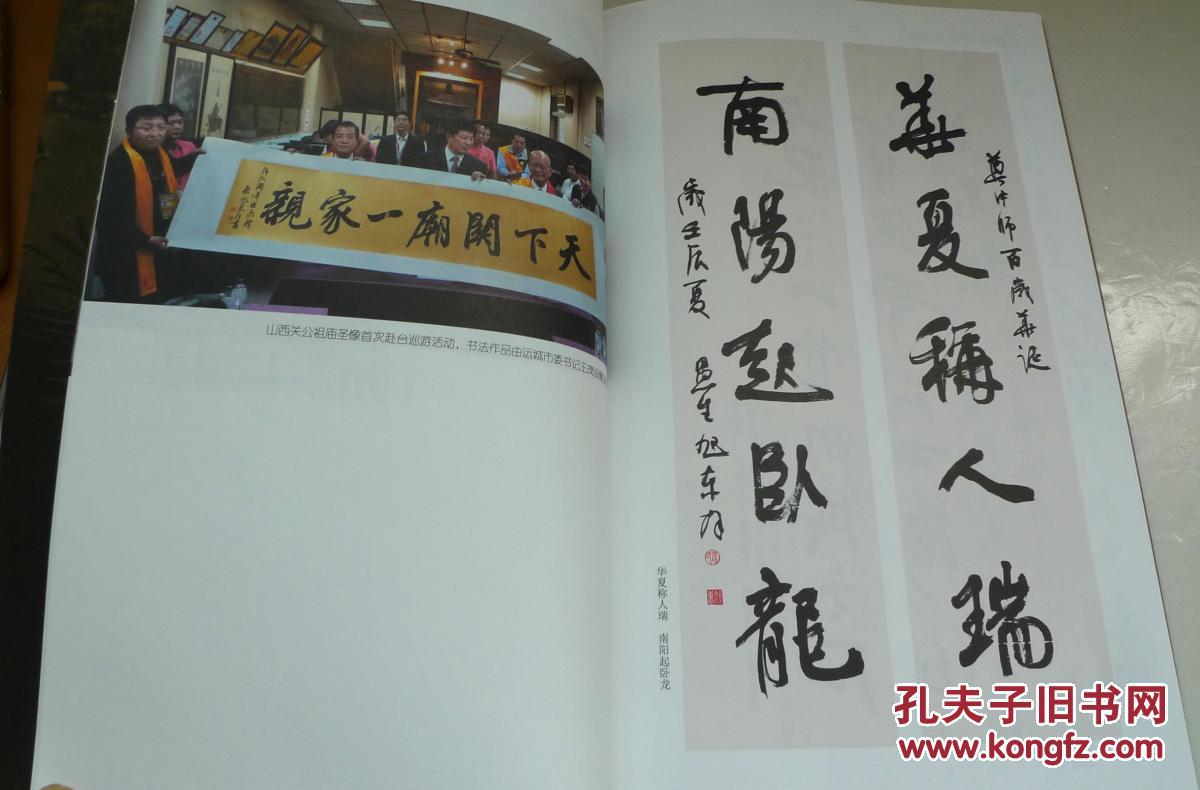 天下関廟一家親
山西关公祖庙圣像首次赴台巡游活动，书法作品由运城市委书记王茂设
華夏稱人瑞
師百歲華诞
南陽起臥龍
歲壬辰夏
旭东
华夏称人瑞 南阳起卧龙
孔夫子旧书网
www.kongfz.com